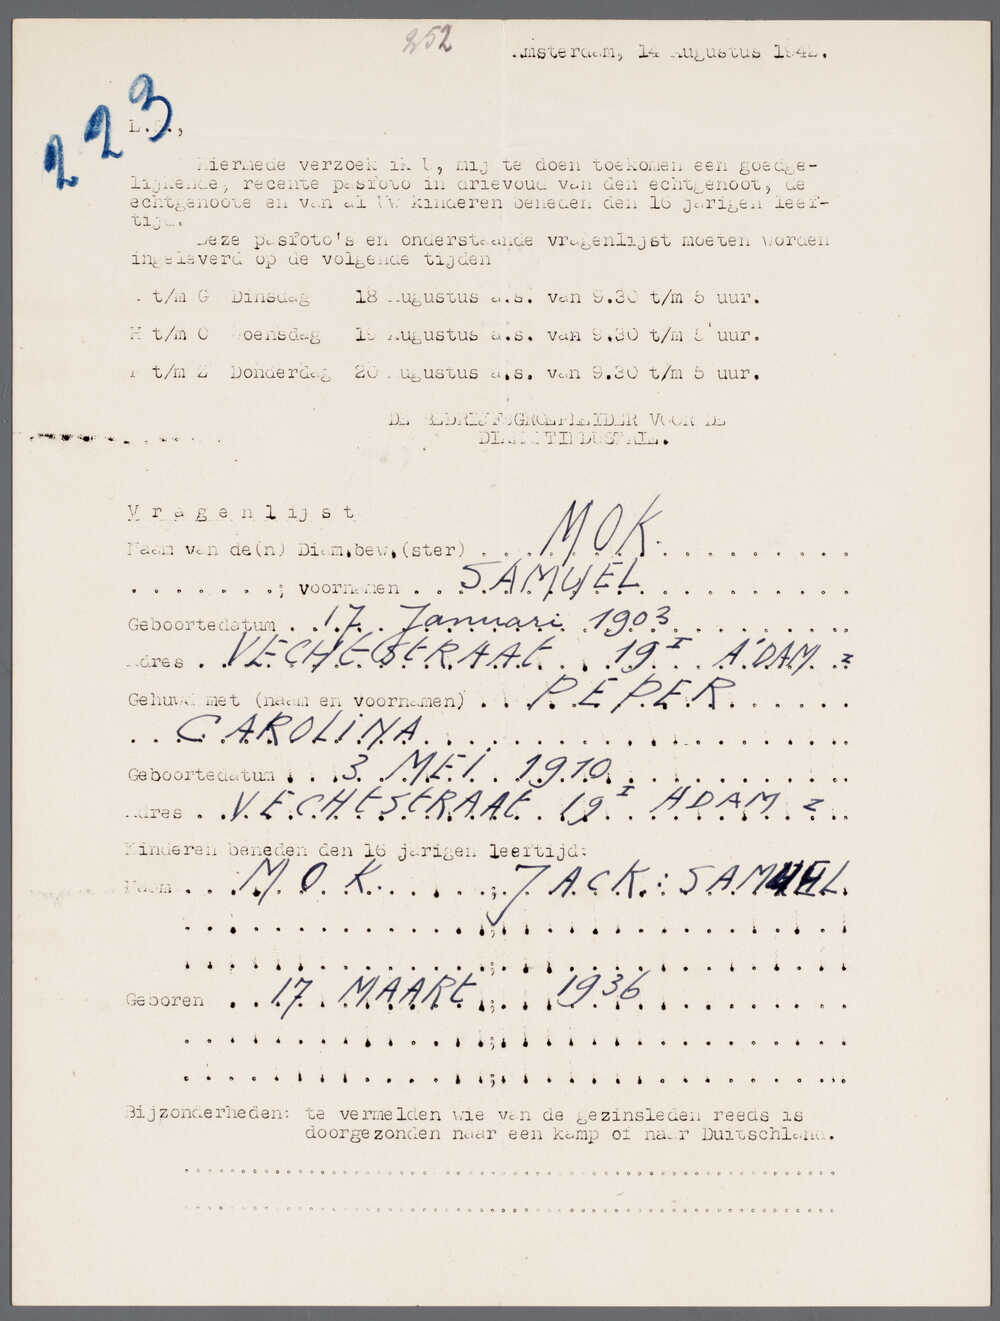 252
Amsterdam, 14 Augustus 1942.
223
L.S.,
Hiermede verzoek ik U, mij te doen toekomen een goedge-
lijkende, recente pasfoto in drievoud van den echtgenoot, de
echtgenoote en van al Uw kinderen beneden den 16 jarigen leef-
tijd.
Deze pasfoto's en onderstaande vragenlijst moeten worden
ingeleverd op de volgende tijden
A t/m G Dinsdag 18 Augustus a.s. van 9.30 t/m 5 uur.
H t/m O Woensdag 19 Augustus a.s. van 9.30 t/m 5 uur.
P t/m Z Donderdag 20 Augustus a.s. van 9.30 t/m 5 uur.
DE BEDRIJFSGROEPLEIDER VOOR DE
DIAMANTINDUSTRIE.
Vragenlijst
Naam van de(n) Diam.bew.(ster) . . . MOK. . . . . . . . . .
. . . . . . .; voornamen . . SAMUEL . . . . . . . . .
Geboortedatum . 17 Januari 1903 . . . . . . .
Adres . VECHtStRAAt . 19 I A'DAM Z
Gehuwd met (naam en voornamen) . . PEPER . . . . . .
. . CAROLINA . . . . . . . . . . . . . . . . . . .
Geboortedatum . . 3 MEI 1910 . . . . . . . . . . .
Adres . . VECHtStRAAt 19 I ADAM Z
Kinderen beneden den 16 jarigen leeftijd:
Naam . . . MOK . . . . . ; JACK : SAMUEL.
. . . . . . . . . . . . . . ; . . . . . . . . . . . . . . . .
. . . . . . . . . . . . . . ; . . . . . . . . . . . . . . . .
Geboren . . 17 MAARt ; . . 1936 . . . . . . . . .
. . . . . . . . . . . . . . ; . . . . . . . . . . . . . . . .
. . . . . . . . . . . . . . ; . . . . . . . . . . . . . . . .
Bijzonderheden: te vermelden wie van de gezinsleden reeds is
doorgezonden naar een kamp of naar Duitschland.
. . . . . . . . . . . . . . . . . . . . . . . . . . . . . .
. . . . . . . . . . . . . . . . . . . . . . . . . . . . . .